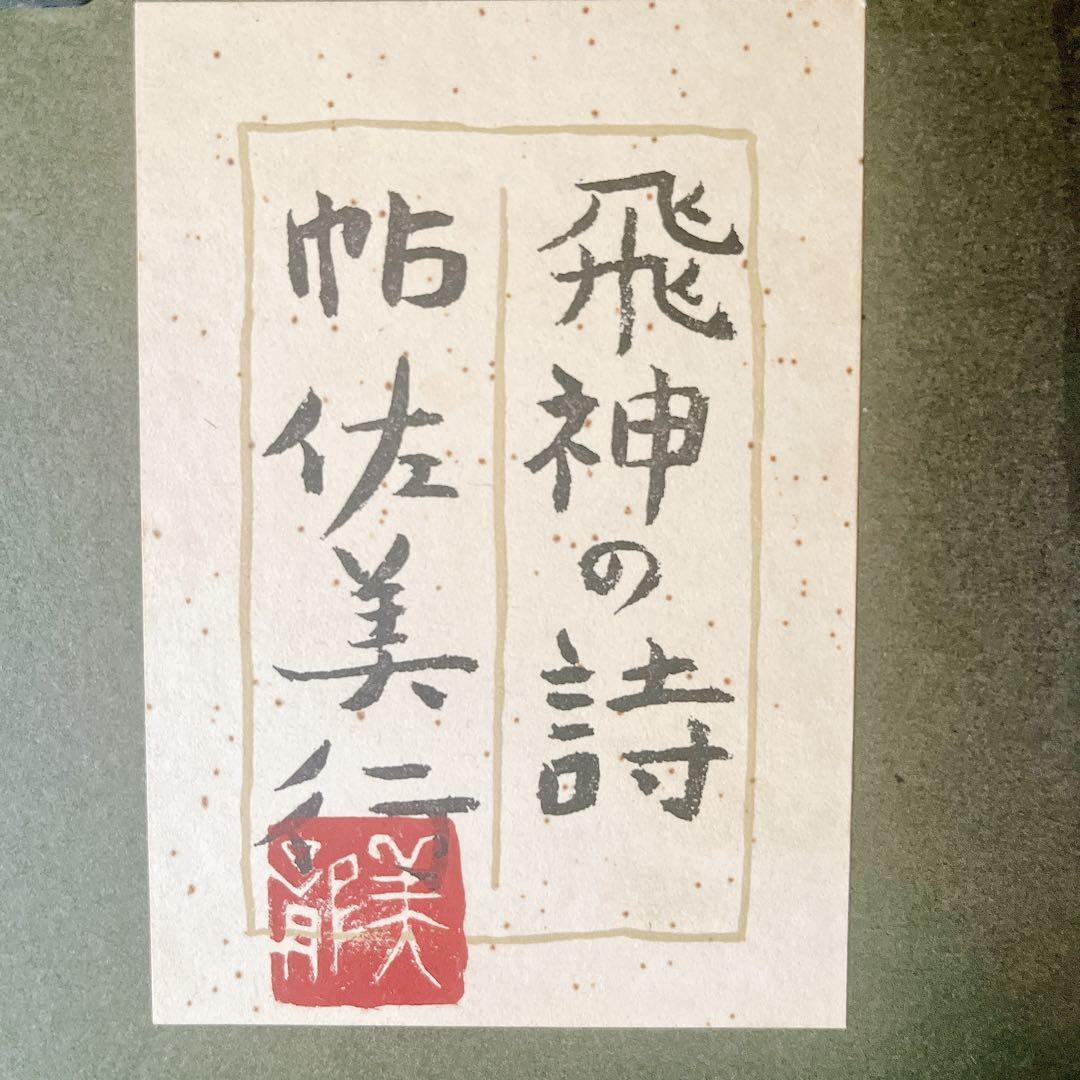 飛神の詩
帖佐美行